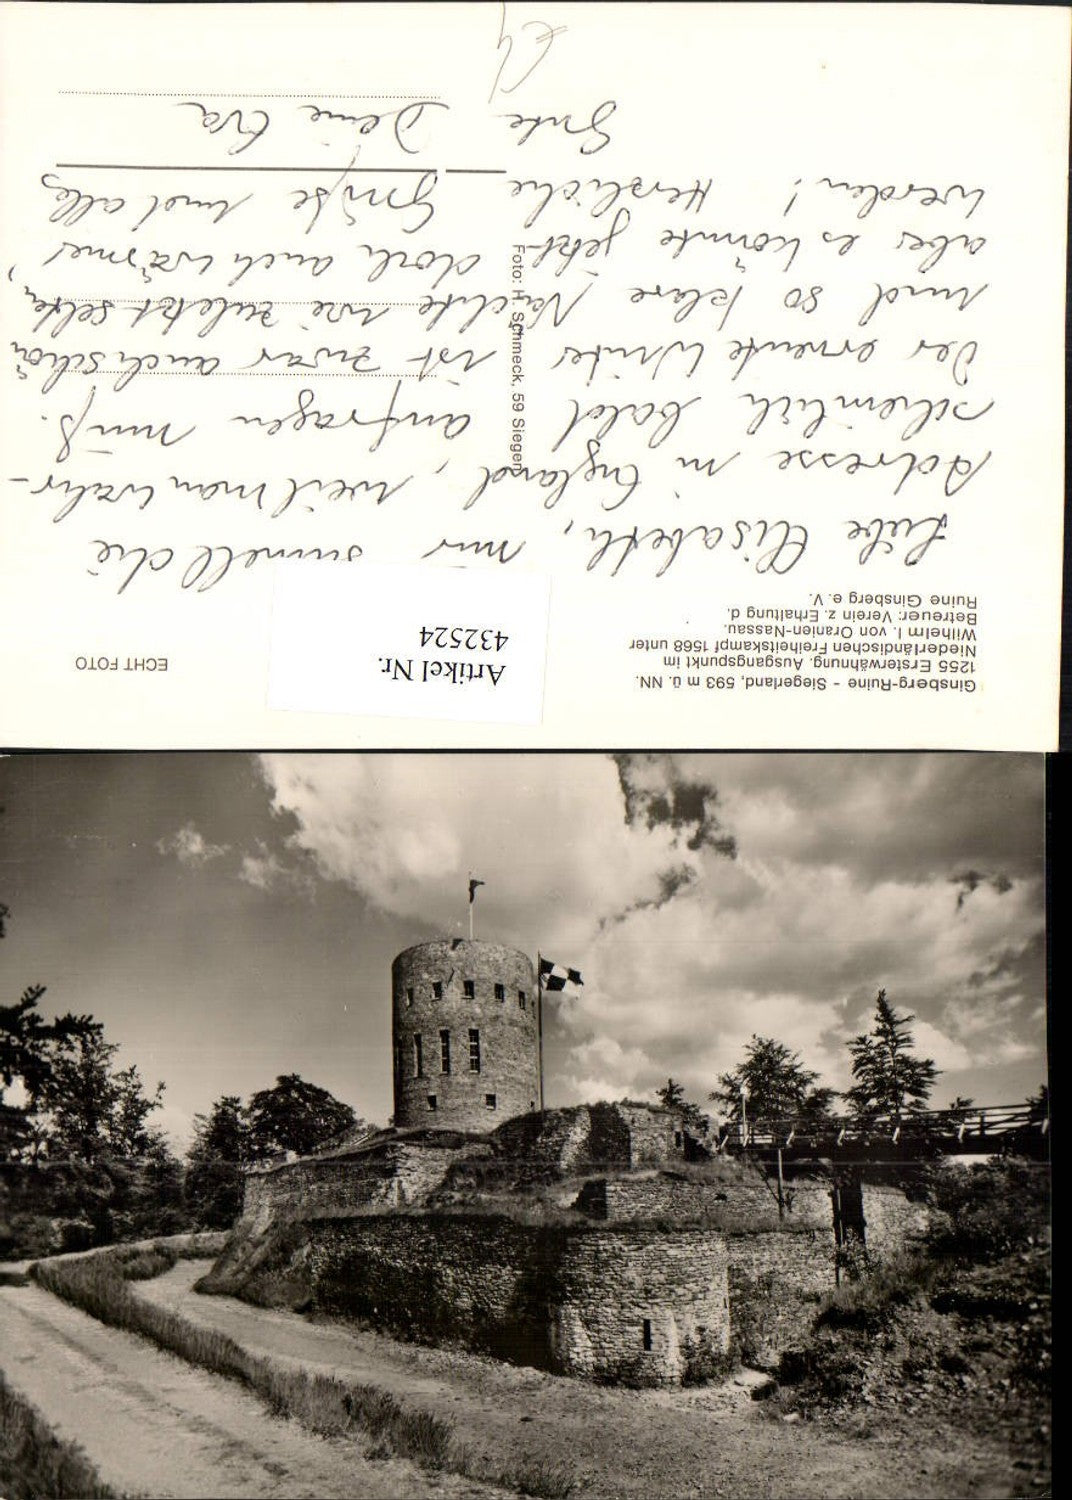 Ginsberg-Ruine - Siegerland, 593 m ü. NN.
1255 Ersterwähnung. Ausgangspunkt im
Niederländischen Freiheitskampf 1568 unter
Wilhelm I. von Oranien-Nassau.
Betreuer: Verein z. Erhaltung d.
Ruine Ginsberg e. V.
ECHT FOTO
Artikel Nr.
432524
Liebe Elisabeth, nur schnell die
Adresse in England, weil man wahr-
scheinlich bald anfragen muß.
Der erneute Winter ist zwar auch schön
und so klare Nächte wie zuletzt selten,
aber es könnte jetzt doch auch wärmer
werden! Herzliche Grüße und alles
Gute Deine Eva
Foto: H. Schmeck, 59 Siegen